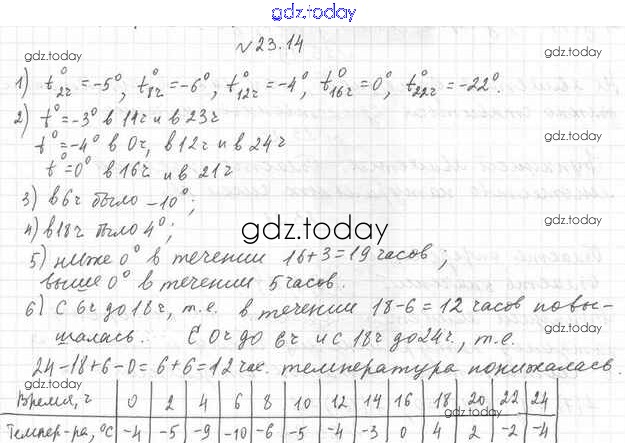 gdz.today
№23.14
gdz.today gdz.today
1) t°2г = -5°, t°8г = -6°, t°12г = -4°, t°16г = 0°, t°22г = -22°.
2) t° = -3° в 11ч и в 23ч
t° = -4° в 0ч, в 12ч и в 24ч
t° = 0° в 16ч и в 21ч
3) в 6ч было -10°;
gdz.today
gdz.today
4) в 18ч было 4°;
5) ниже 0° в течении 16+3=19 часов;
выше 0° в течении 5 часов.
6) С 6ч до 18ч, т.е. в течении 18-6=12 часов повы-
шалась. С 0ч до 6ч и с 18ч до 24ч, т.е.
24-18+6-0=6+6=12 час. температура понижалась.
gdz.today gdz.today
Время, ч 0 2 4 6 8 10 12 14 16 18 20 22 24
Темпер-ра, °С -4 -5 -9 -10 -6 -5 -4 -3 0 4 2 -2 -4
gdz.today gdz.today